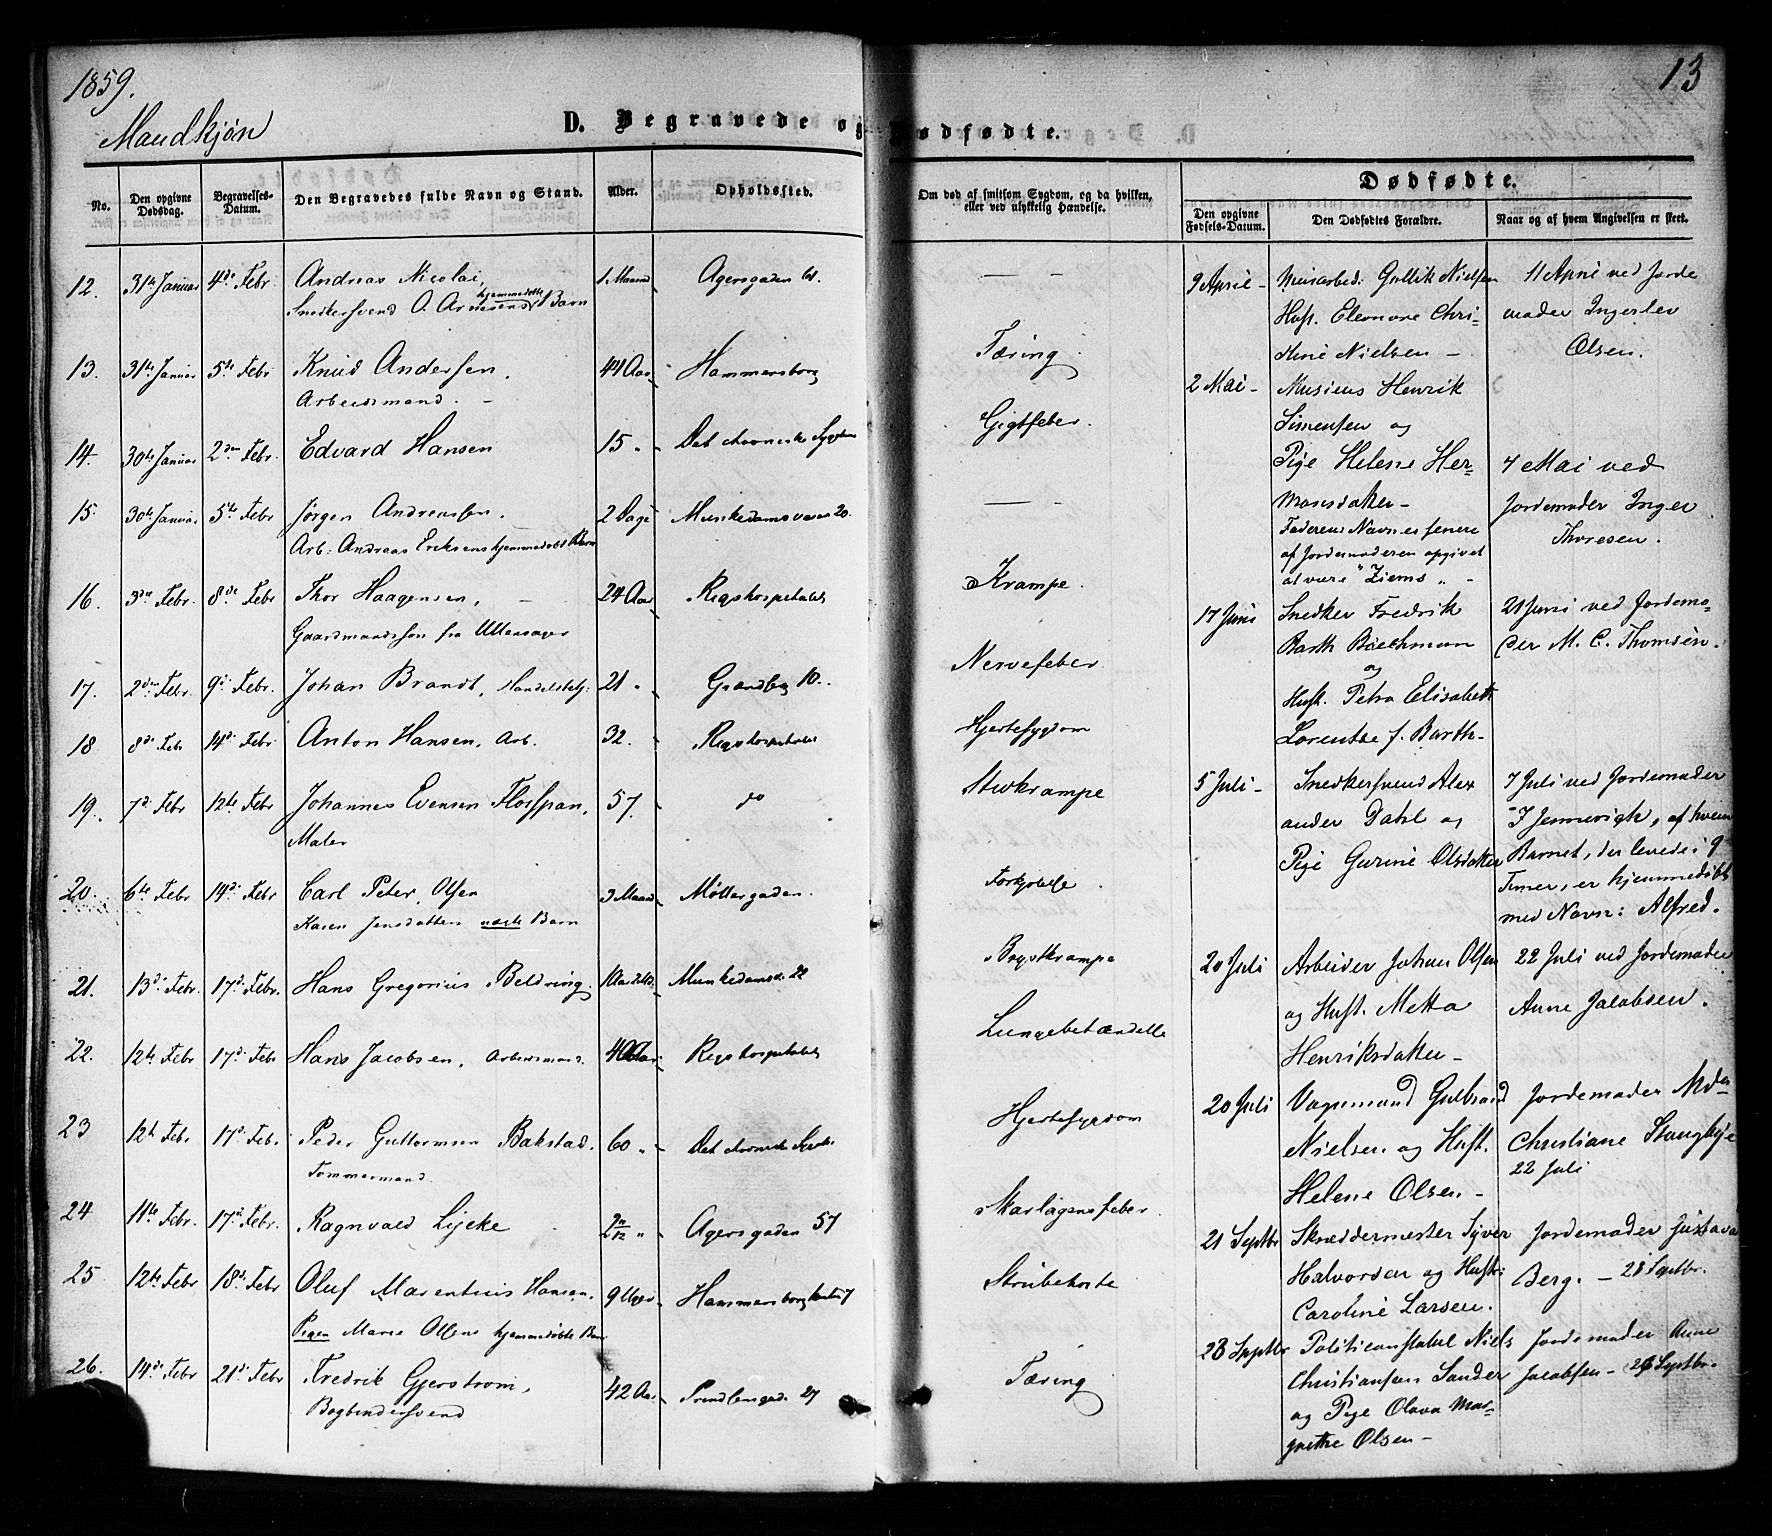 1859.
13
Mandkjøn
D. Begravede og Dødfødte.
No.
Den opgivne Dødsdag.
Begravelses-Datum.
Den Begravedes fulde Navn og Stand.
Alder.
Opholdssted.
Om død af smitsom Sygdom, og da hvilken, eller ved ulykkelig Hændelse.
Dødfødte.
Den opgivne Fødsels-Datum.
Den Dødfødtes Forældre.
Naar og af hvem Angivelsen er skeet.
12. 31te Januar 4de Febr Andreas Nicolai, 1 Maaned Agersgaden 61. — —
Snedkersvend O. Arnesens hjemmedøbte Barn
13. 31te Januar 5te Febr Knud Andersen, 44 Aar Hammersborg Tæring.
Arbeidsmand. –
14. 30te Januar 2den Febr. Edvard Hansen 15 " Det chroniske Sygehus Gigtfeber.
15. 30te Januar 5te Febr Jørgen Andreassen. 2 Dage Munkedamsveien 20. — —
Arb: Andreas Eriksens hjemmedøbt Barn
16. 3die Febr. 8de Febr Thor Haagensen, 24 Aar Rigshospitalet Krampe.
Gaardmandssøn fra Ullensager
17. 2den Febr. 9d. Febr. Johan Brandt, Handelsbetj: 21 " Grændseg 10. Nervefeber.
18 8de Febr 14d. Febr. Anton Hansen, Arb. 32. Rigshospitalet Hjertesygdom
19. 7d. Febr 12te Febr Johannes Evensen Flosspan, 57. do Stivkrampe
Maler
20. 6te Febr 14d. Febr. Carl Peter Olsen 3 Maaned Møllergaden. Forkjølelse.
Karen Jensdatters uægte Barn
21. 13d. Febr. 17d. Febr. Hans Gregorius Beldring. Munkedamsv. 22 Brystkrampe
22. 12te Febr 17d. Febr Hans Jacobsen, Arbeidsmand. 40 Aar Rigshospitalet Lungebetændelse
23 12te Febr. 17d. Febr. Peder Guttormsen Bakstad. 60 " Det chroniske Sygeh. Hjertesygdom
Tømmermand
24 11te Febr. 17d Febr. Ragnvald Lycke Agersgaden 57 Skarlagensfeber.
25 12te Febr 18d. Febr Oluf Marentius Hansen. 9 Uger Hammersborg Strubehoste
Pigen Marie Olsens hjemmedøbte Barn
26. 14de Febr 21d. Febr Fredrik Gjerstrøm, 42 Aar 27 Tæring
Bogbindersvend
9 April – Murarbed. Gullik Nielsen 11 April ved Jorde
Hust. Eleonore Chri- moder Ingerlev
stine Nielsen – Olsen.
2 Mai – Musicus Henrik
Simensen og
Pige Helene Her- 4 Mai ved
mansdatter – Jordemoder Inger
Faderens Navn er senere Thoresen.
af Jordemoderen opgivet
at være "Ziems" –
17 Juni Snedker Fredrik 21 Juni ved Jordemo-
Barth Boeckman der M. C. Thomsen.
og
Hust. Petra Elisabeth
Lorentze f. Barth –
5 Juli – Snedkersvend Alex 7 Juli ved Jordemoder
ander Dahl og af hvem
Pige Gurine Olsdatter Barnet, der levede i 9
Timer, er hjemmedøbt
med Navn: Alfred.
20 Juli Arbeider Johan Olsen 22 Juli ved Jordemoder
og Hust. Metta Anne Jacobsen.
Henriksdatter –
20 Juli Vognmand Gulbrand Jordemoder
Nielsen og Hust. Christiane
Helene Olsen – 22 Juli
21 Septbr Skræddermester Syver Jordemoder Gustava
Halvorsen og Hustr: Berg. – 28 Septbr.
Caroline Larsen.
23 Septbr Politiconstabel Niels Jordemoder Anne
Christiansen Sander Jacobsen – 26 Septbr.
og Pige Olava Mar-
grethe Olsen –